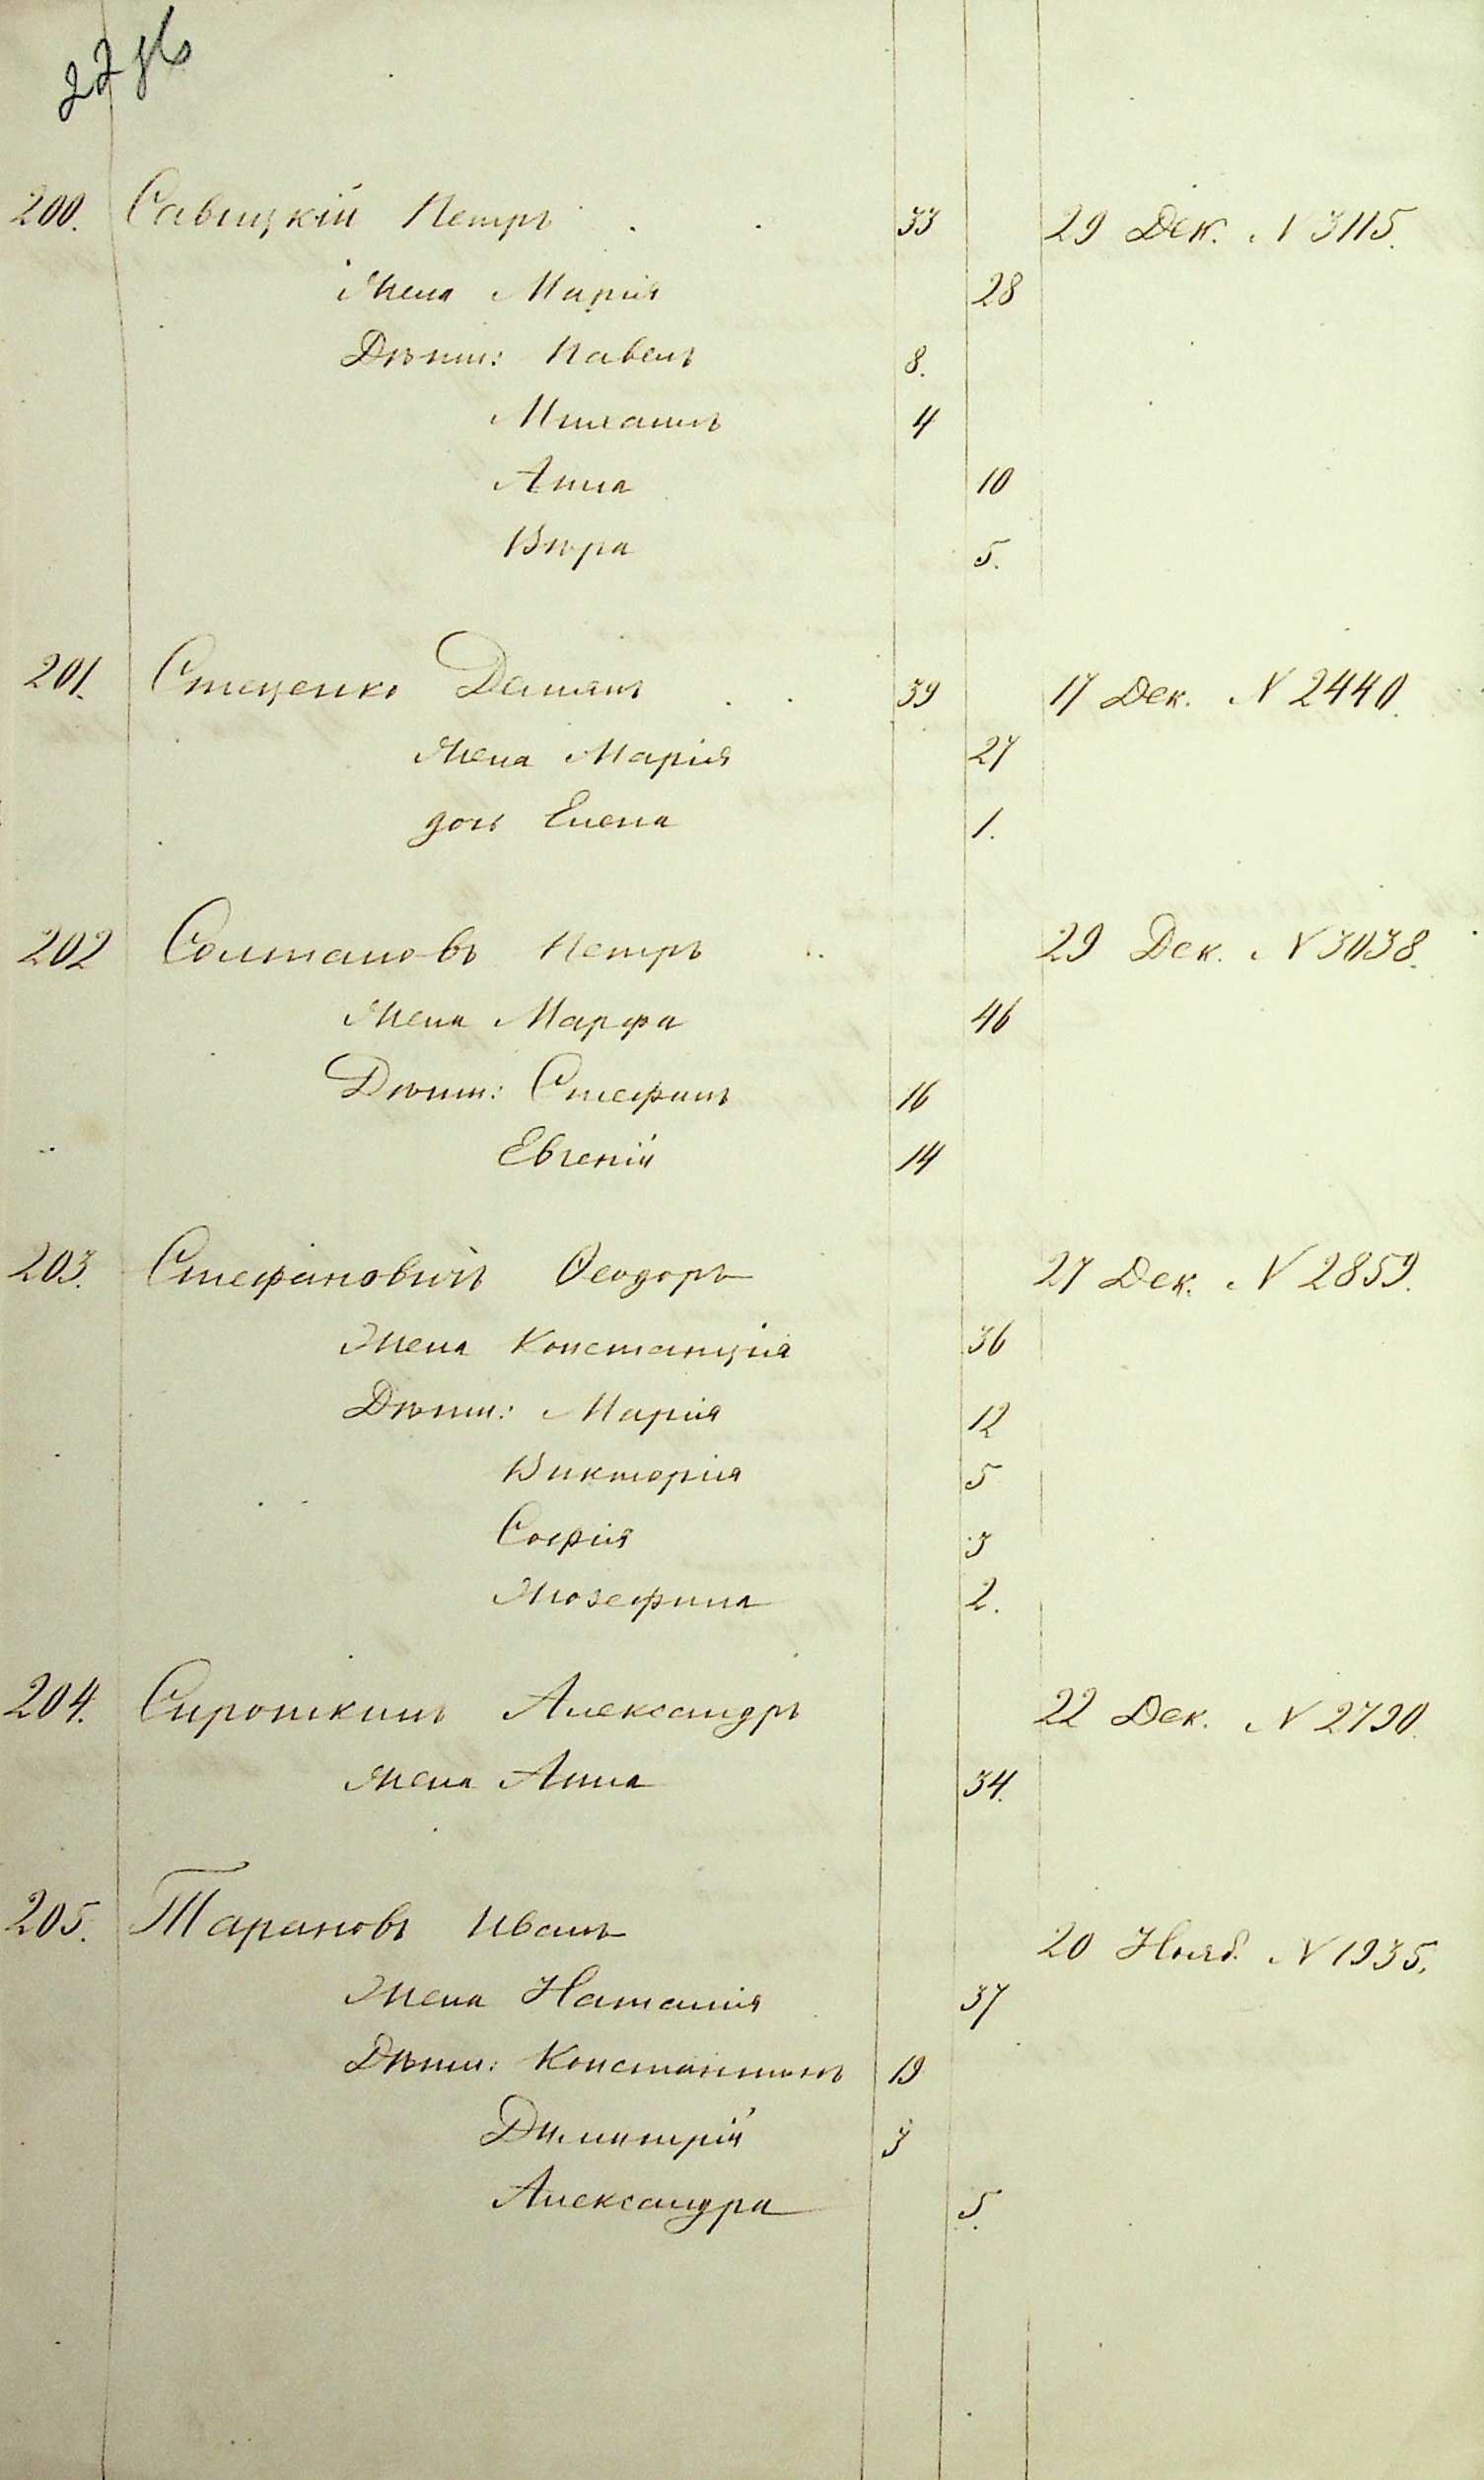 200. Савицкій Петръ 33 29 Дек. N 3115.
Жена Марія 28
Дѣти: Павелъ 8.
Михаилъ 4
Анна 10
Вѣра 5.
201. Стеценко Демянъ 39 17 Дек. N 2440.
жена Марія 27
дочь Елена 1.
202 Солтановъ Петръ 29 Дек. N 3038.
Жена Марфа 46
Дѣти: Стефанъ 16
Евгеній 14
203. Стефановичъ Ѳеодоръ 27 Дек. N 2859.
Жена Констанція 36
Дѣти: Марія 12
Викторія 5
Софія 3
Жозефина 2.
204. Сироткинъ Александръ 22 Дек. N 2790.
жена Анна 34.
205. Тарановъ Иванъ 20 Нояб. N 1935.
Жена Наталія 37
Дѣти: Константинъ 19
Димитрій 3
Александра 5.